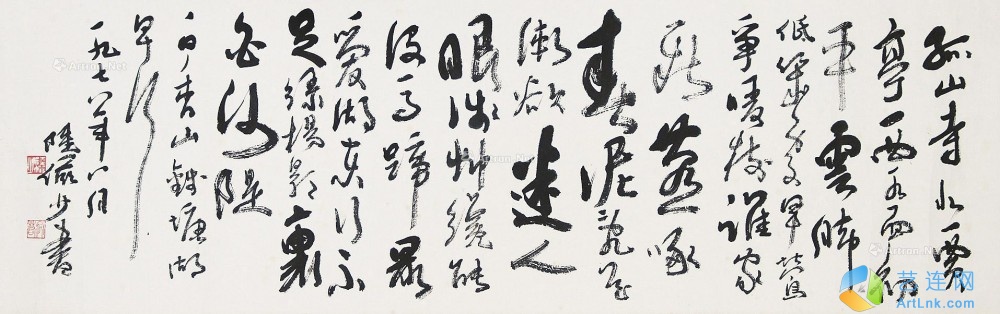 孤山寺北賈
亭西水面初
平雲脚
低幾處早鶯
爭暖樹誰家
新燕啄
春泥亂花
漸欲迷人
眼淺草纔能
没馬蹄最
愛湖東行不
足綠楊影裏
白沙堤
白香山錢塘湖
早行
一九七八年八月
陸儼少書
艺连网
ArtLnk.com